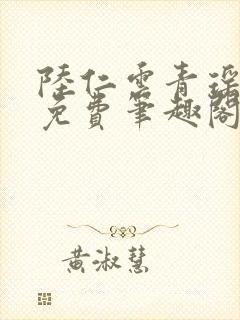 陸仁雲青瑤
免費筆趣閣
黃淑慧